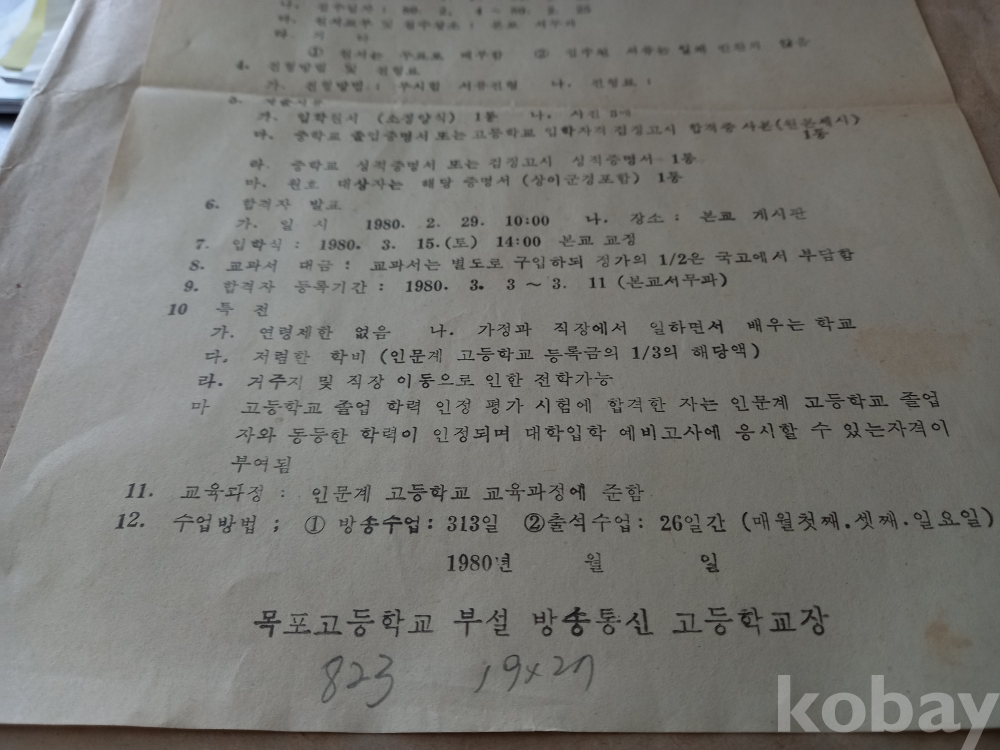 ① 원서는 무료로 배부함 ② 접수된 서류는 일체 반환치 않음
4. 전형방법 및 전형료
가. 전형방법 : 무시험 서류전형 나. 전형료 :
5.
가. 입학원서 (소정양식) 1통 나. 사진
다. 중학교 졸업증명서 또는 고등학교 입학자격 검정고시 합격증 사본(원본제시)
1통
라. 중학교 성적증명서 또는 검정고시 성적증명서 1통
마. 원호 대상자는 해당 증명서 (상이군경포함) 1통
6. 합격자 발표
가. 일 시 1980. 2. 29. 10:00 나. 장소 : 본교 게시판
7. 입학식 : 1980. 3. 15.(토) 14:00 본교 교정
8. 교과서 대금 : 교과서는 별도로 구입하되 정가의 1/2은 국고에서 부담함
9. 합격자 등록기간 : 1980. 3. 3 ~ 3. 11 (본교서무과)
10 특 전
가. 연령제한 없음 나. 가정과 직장에서 일하면서 배우는 학교
다. 저렴한 학비 (인문계 고등학교 등록금의 1/3의 해당액)
라. 거주지 및 직장 이동으로 인한 전학가능
마 고등학교 졸업 학력 인정 평가 시험에 합격한 자는 인문계 고등학교 졸업
자와 동등한 학력이 인정되며 대학입학 예비고사에 응시할 수 있는자격이
부여됨
11. 교육과정 : 인문계 고등학교 교육과정에 준함
12. 수업방법 ; ① 방송수업 : 313일 ②출석수업 : 26일간 (매월첫째.셋째.일요일)
1980년 월 일
목포고등학교 부설 방송통신 고등학교장
823 19x27
kobay